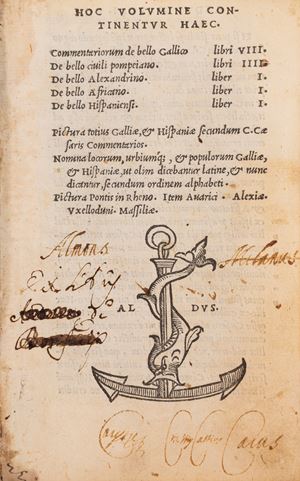 HOC VOLVMINE CON-
TINENTVR HAEC.
Commentariorum de bello Gallico libri VIII.
De bello ciuili pompeiano. libri IIII.
De bello Alexandrino. liber I.
De bello Africano. liber I.
De bello Hispaniensi. liber I.
Pictura totius Galliæ, & Hispaniæ secundum C. Cæ-
saris Commentarios.
Nomina locorum, urbiumq́;, & populorum Galliæ,
& Hispaniæ, ut olim dicebantur latine, & nunc
dicātur, secundum ordinem alphabeti.
Pictura Pontis in Rheno. Item Auarici. Alexiæ.
Vxelloduni. Massiliæ.
AL DVS.
Caius